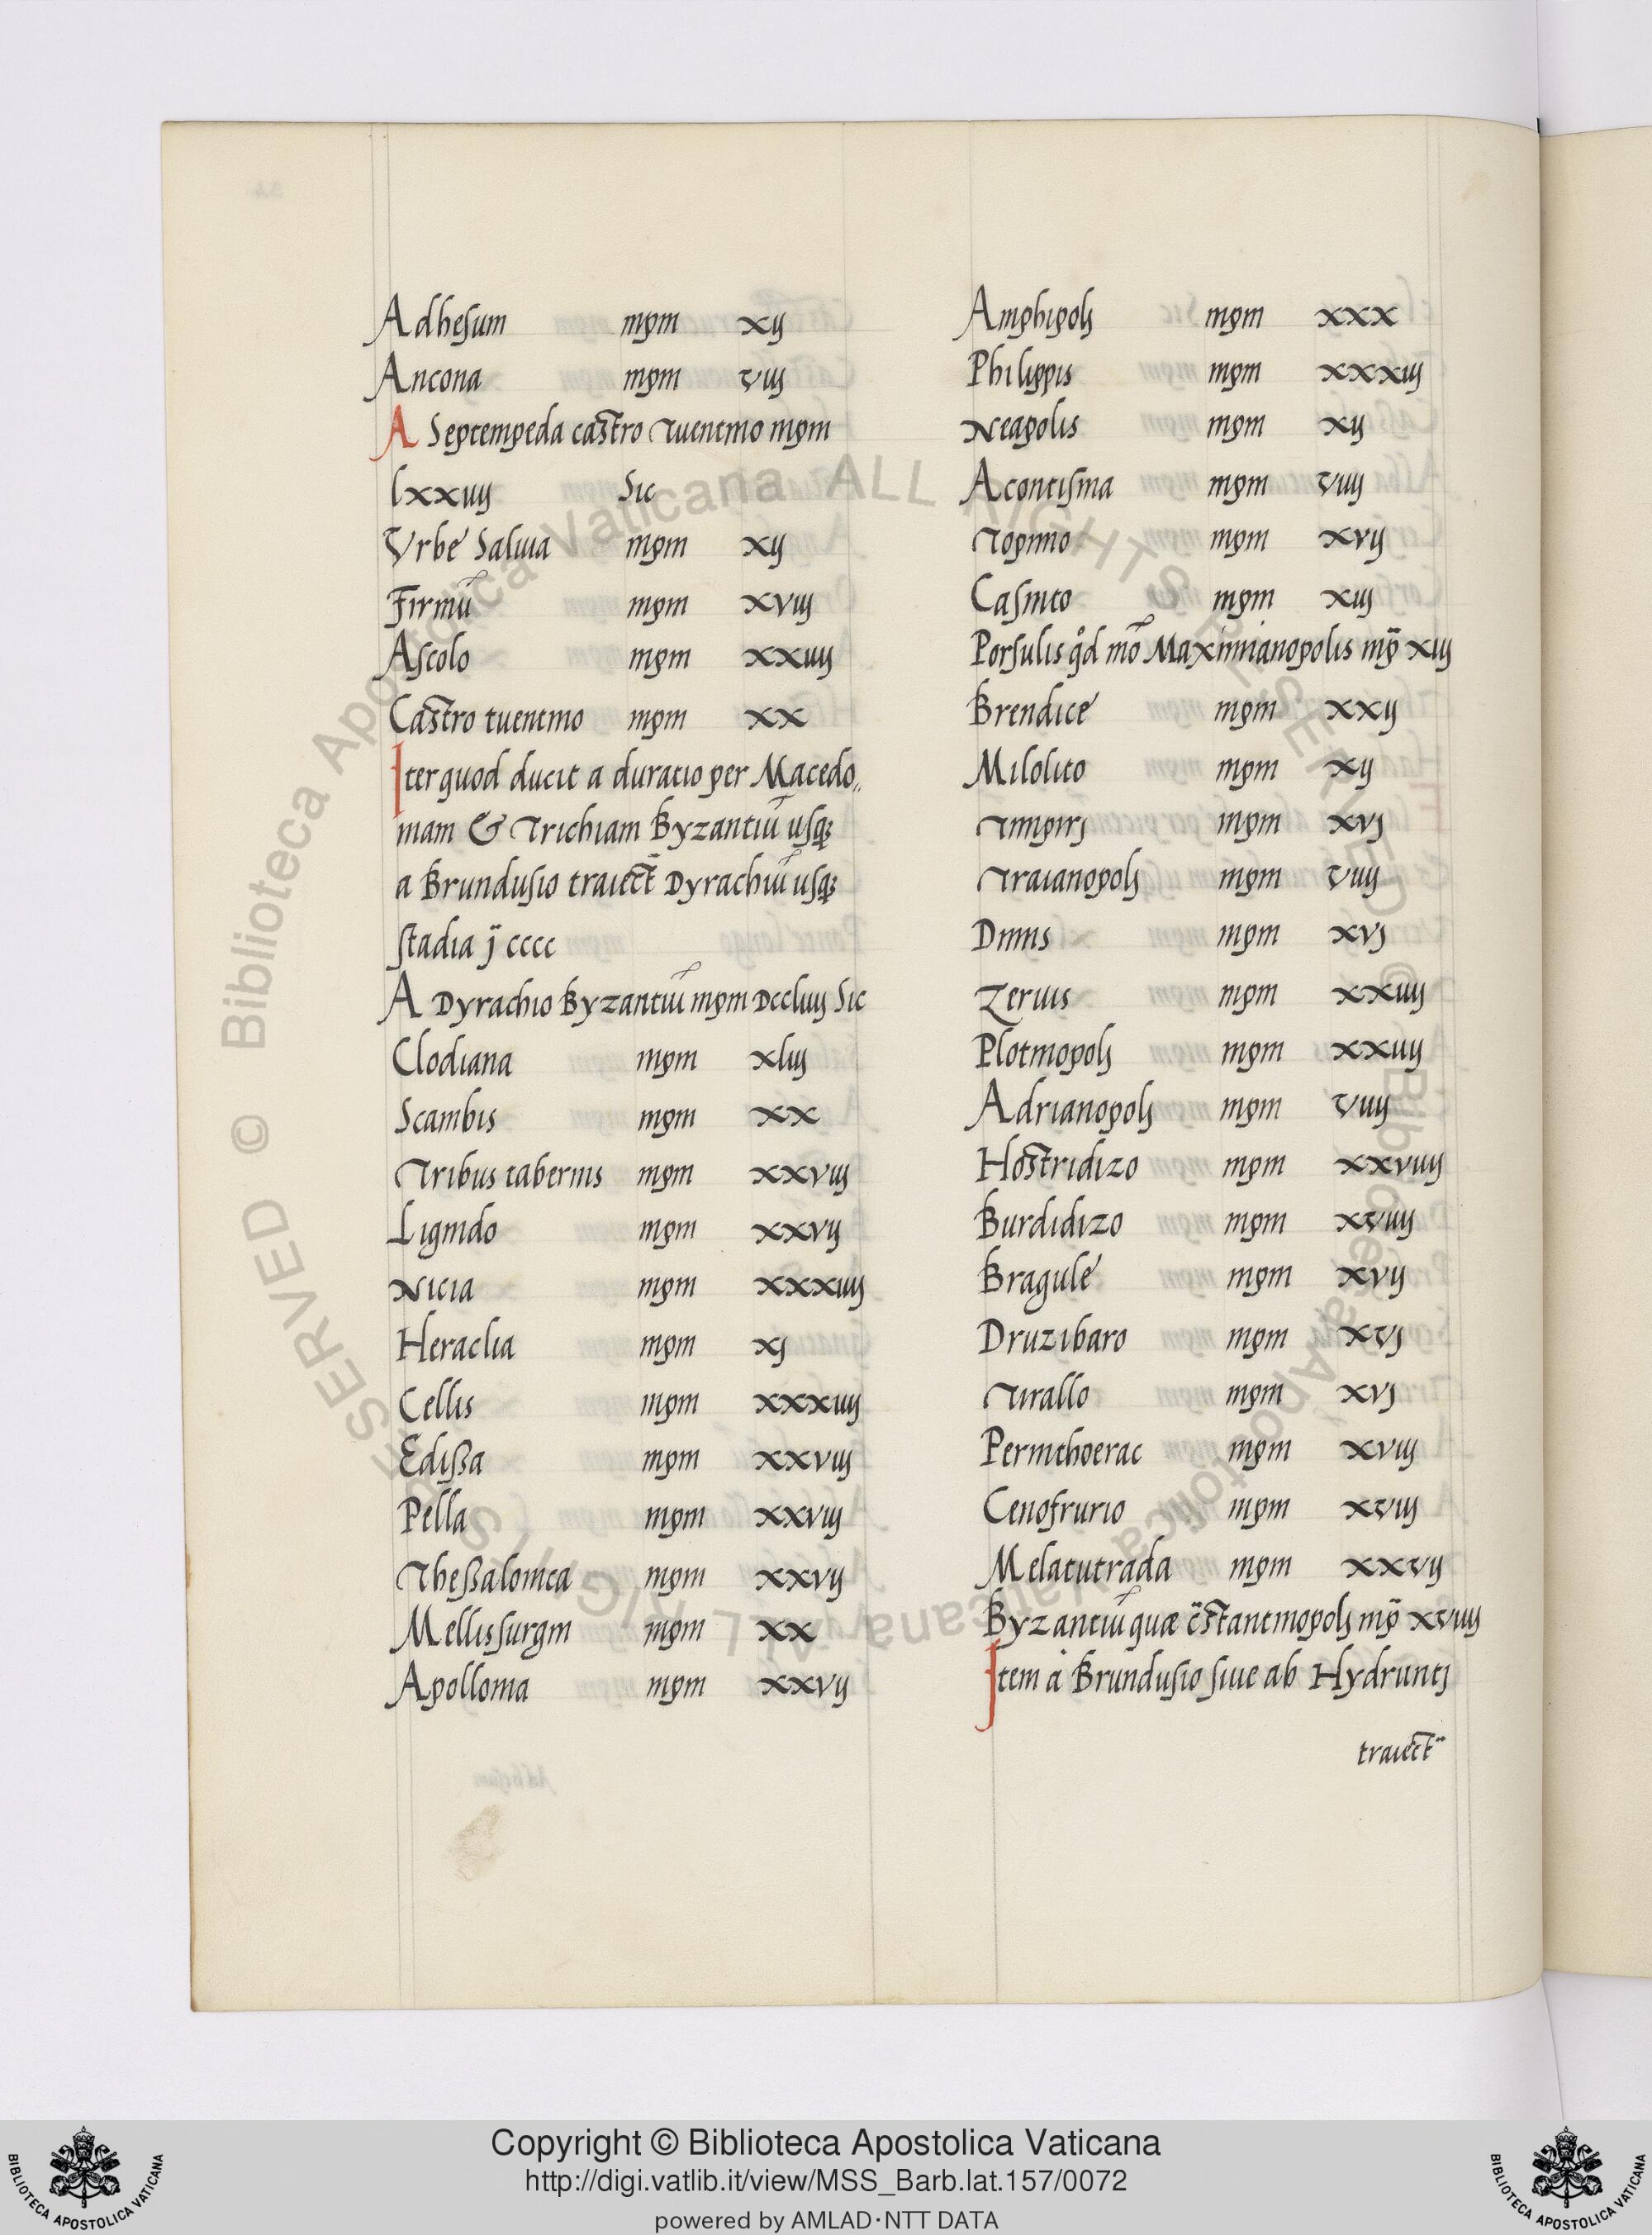 Adhesum mpm xij
Ancona mpm viij
A Septempeda castro Truentino mpm
lxxiiij Sic
Vrbe Saluia mpm xij
Firmũ mpm xviij
Ascolo mpm xxiiij
Castro tuentino mpm xx
Iter quod ducit a duratio per Macedo„
niam & Trichiam Byzantiũ usq;
a Brundusio traiect̄ Dyrachiũ usq;
stadia ī cccc
A Dyrachio Byzantiũ mpm Dccliiij Sic
Clodiana mpm xliij
Scambis mpm xx
Tribus tabernis mpm xxviij
Lignido mpm xxvij
Nicia mpm xxxiiij
Heraclia mpm xj
Cellis mpm xxxiiij
Edißa mpm xxviij
Pella mpm xxviij
Theßalonica mpm xxvij
Mellissurgin mpm xx
Apollonia mpm xxvij
Amphipolj mpm xxx
Philippis mpm xxxiij
Neapolis mpm xij
Acontisma mpm viiij
Topirino mpm xvij
Casinto mpm xiij
Porsulis qd mõ Maximianopolis mp̄ xiij
Brendice mpm xxij
Milolito mpm xij
Timpirj mpm xvj
Traianopolj mpm viiij
Dimis mpm xvj
Zeruis mpm xxiiij
Plotinopolj mpm xxiiij
Adrianopolj mpm viiij
Hostridizo mpm xxviiij
Burdidizo mpm xviiij
Bragule mpm xvij
Druzibaro mpm xvj
Tirallo mpm xvj
Perinthoerac mpm xviij
Cenofrurio mpm xviij
Melatutrada mpm xxvij
Byzantiũ quæ c̄stantinopolj mp̄ xviiij
Item á Brundusio siue ab Hydruntj
traiect̄
© Biblioteca Apostolica Vaticana ALL RIGHTS RESERVED © Biblioteca Apostolica Vaticana ALL RIGHTS RESERVED
Copyright © Biblioteca Apostolica Vaticana
http://digi.vatlib.it/view/MSS_Barb.lat.157/0072
powered by AMLAD·NTT DATA
BIBLIOTECA APOSTOLICA VATICANA
BIBLIOTECA APOSTOLICA VATICANA